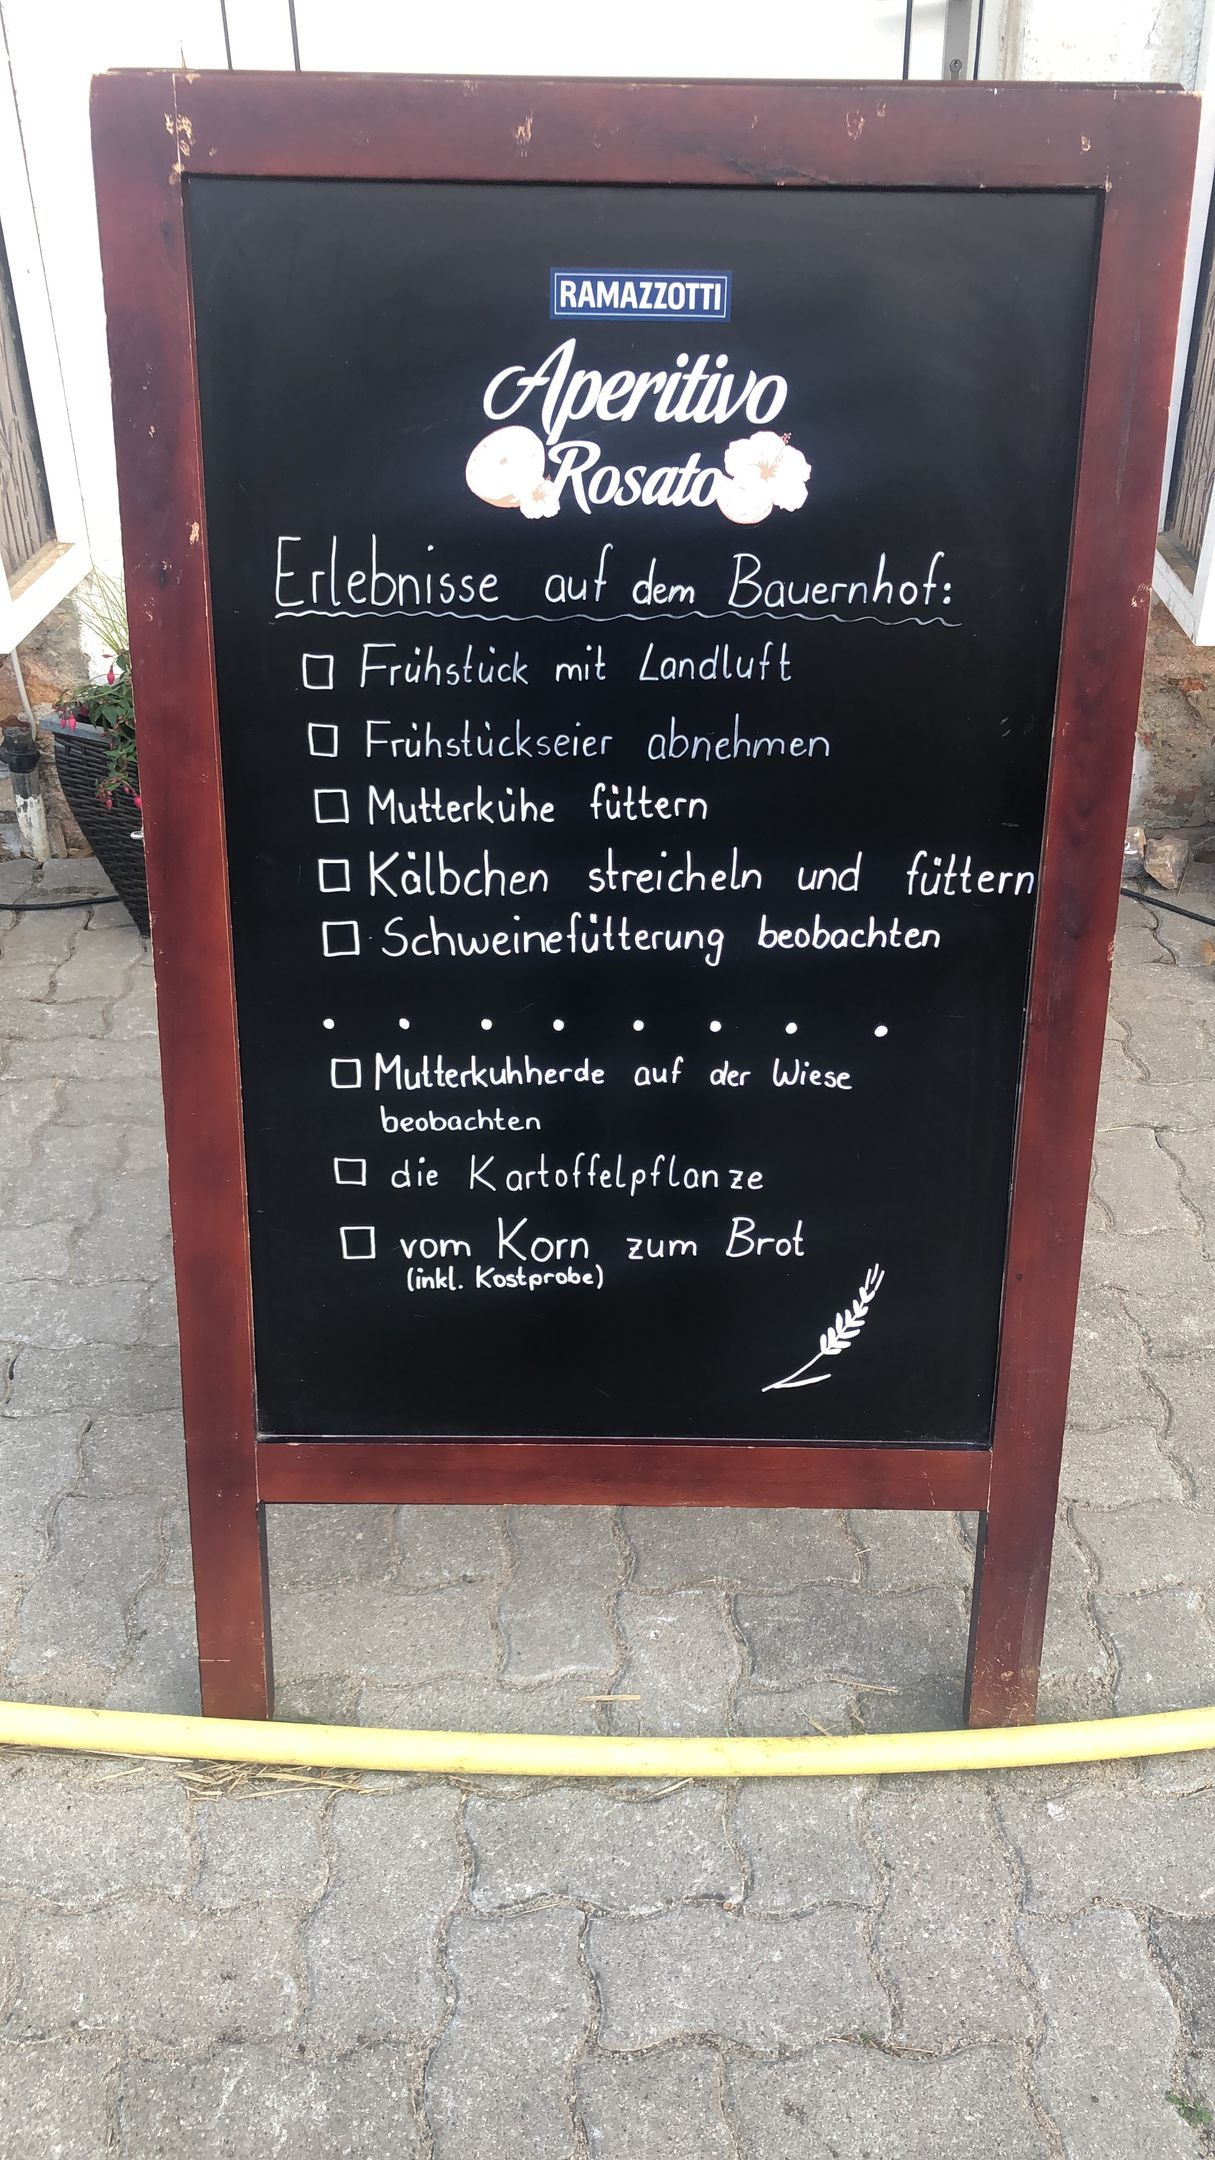 RAMAZZOTTI
Aperitivo
Rosato
Erlebnisse auf dem Bauernhof:
Frühstück mit Landluft
Frühstückseier abnehmen
Mutterkühe füttern
Kälbchen streicheln und füttern
Schweinefütterung beobachten
Mutterkuhherde auf der Wiese
beobachten
die Kartoffelpflanze
vom Korn zum Brot
(inkl. Kostprobe)